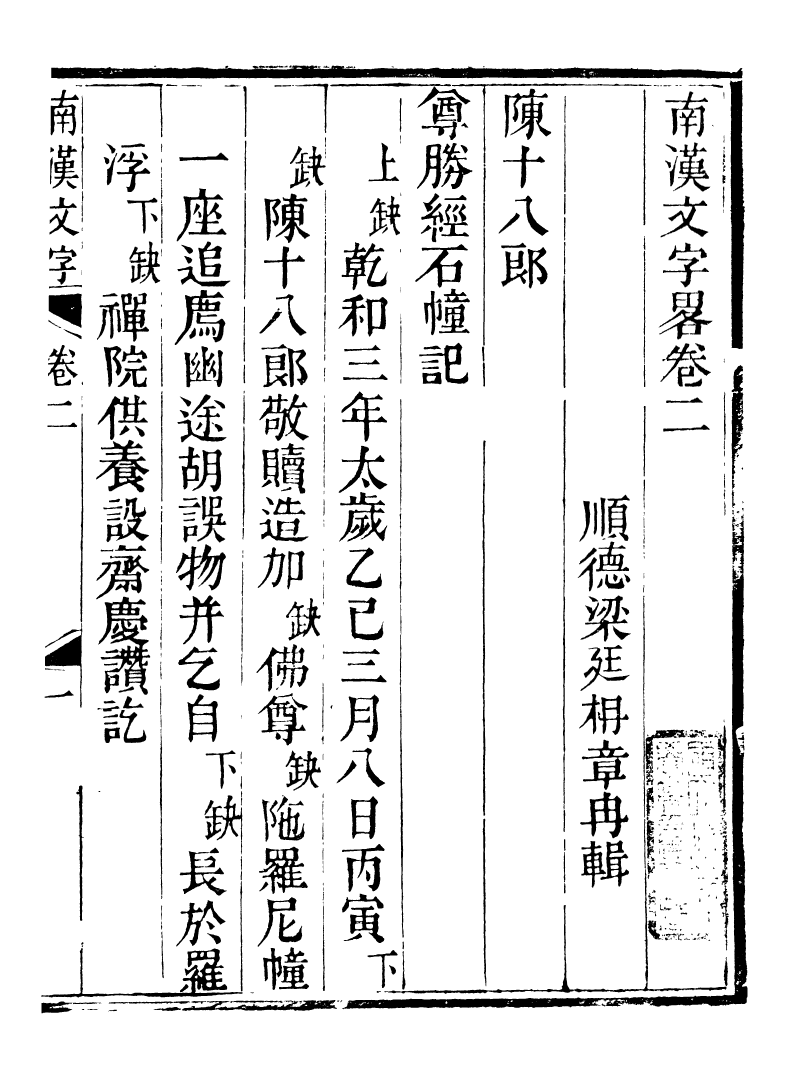 南漢文字畧卷二
順德梁廷枏章冉輯
陳十八郎
尊勝經石幢記
上缺乾和三年太歲乙巳三月八日丙寅下
缺陳十八郎敬贖造加缺佛尊缺陁羅尼幢
一座追鷹幽途胡誤物并乞自下缺長於羅
浮下缺禪院供養設齋慶讚訖
南漢文字
卷二
一